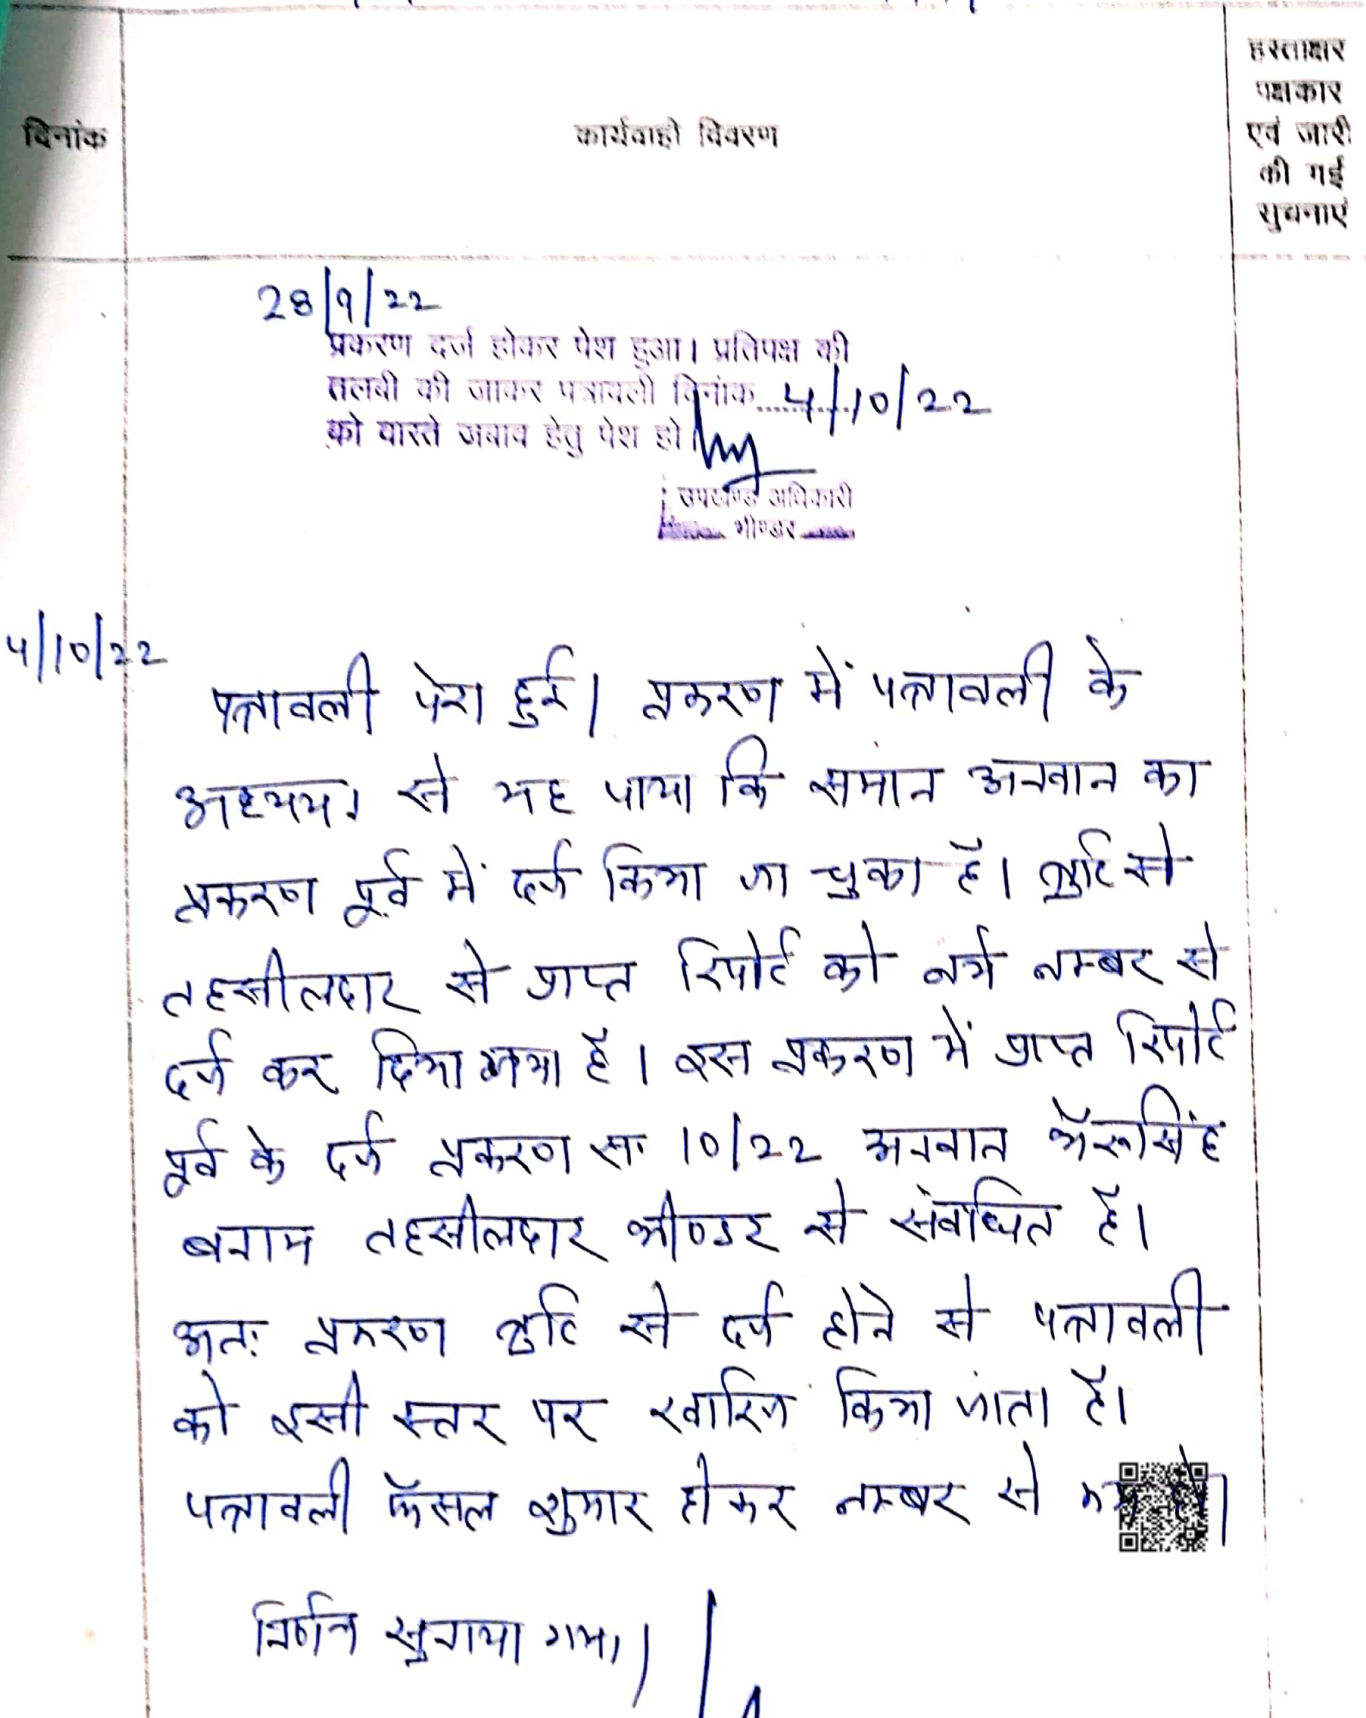 दिनांक
कार्यवाही विवरण
हस्ताक्षर
पक्षकार
एवं जारी
की गई
सुचनाएं
28/9/22
प्रकरण दर्ज होकर पेश हुआ। प्रतिपक्ष की
तलबी की जाकर पत्रावली दिनांक 4/10/22
को वास्ते जवाब हेतु पेश हो।
उपखण्ड अधिकारी
भीण्डर
4/10/22
पत्रावली पेश हुई। प्रकरण में पत्रावली के
अध्ययन से यह पाया कि समान अनवान का
प्रकरण पूर्व में दर्ज किया जा चुका है। त्रुटि से
तहसीलदार से प्राप्त रिपोर्ट को नये नम्बर से
दर्ज कर दिया गया है। इस प्रकरण में प्राप्त रिपोर्ट
पूर्व के दर्ज प्रकरण स. 10/22 अनवान भैरूसिंह
बनाम तहसीलदार भीण्डर से संबंधित है।
अतः प्रकरण त्रुटि से दर्ज होने से पत्रावली
को इसी स्तर पर खारिज किया जाता है।
पत्रावली फैसल शुमार होकर नम्बर से
निर्णय सुनाया गया।